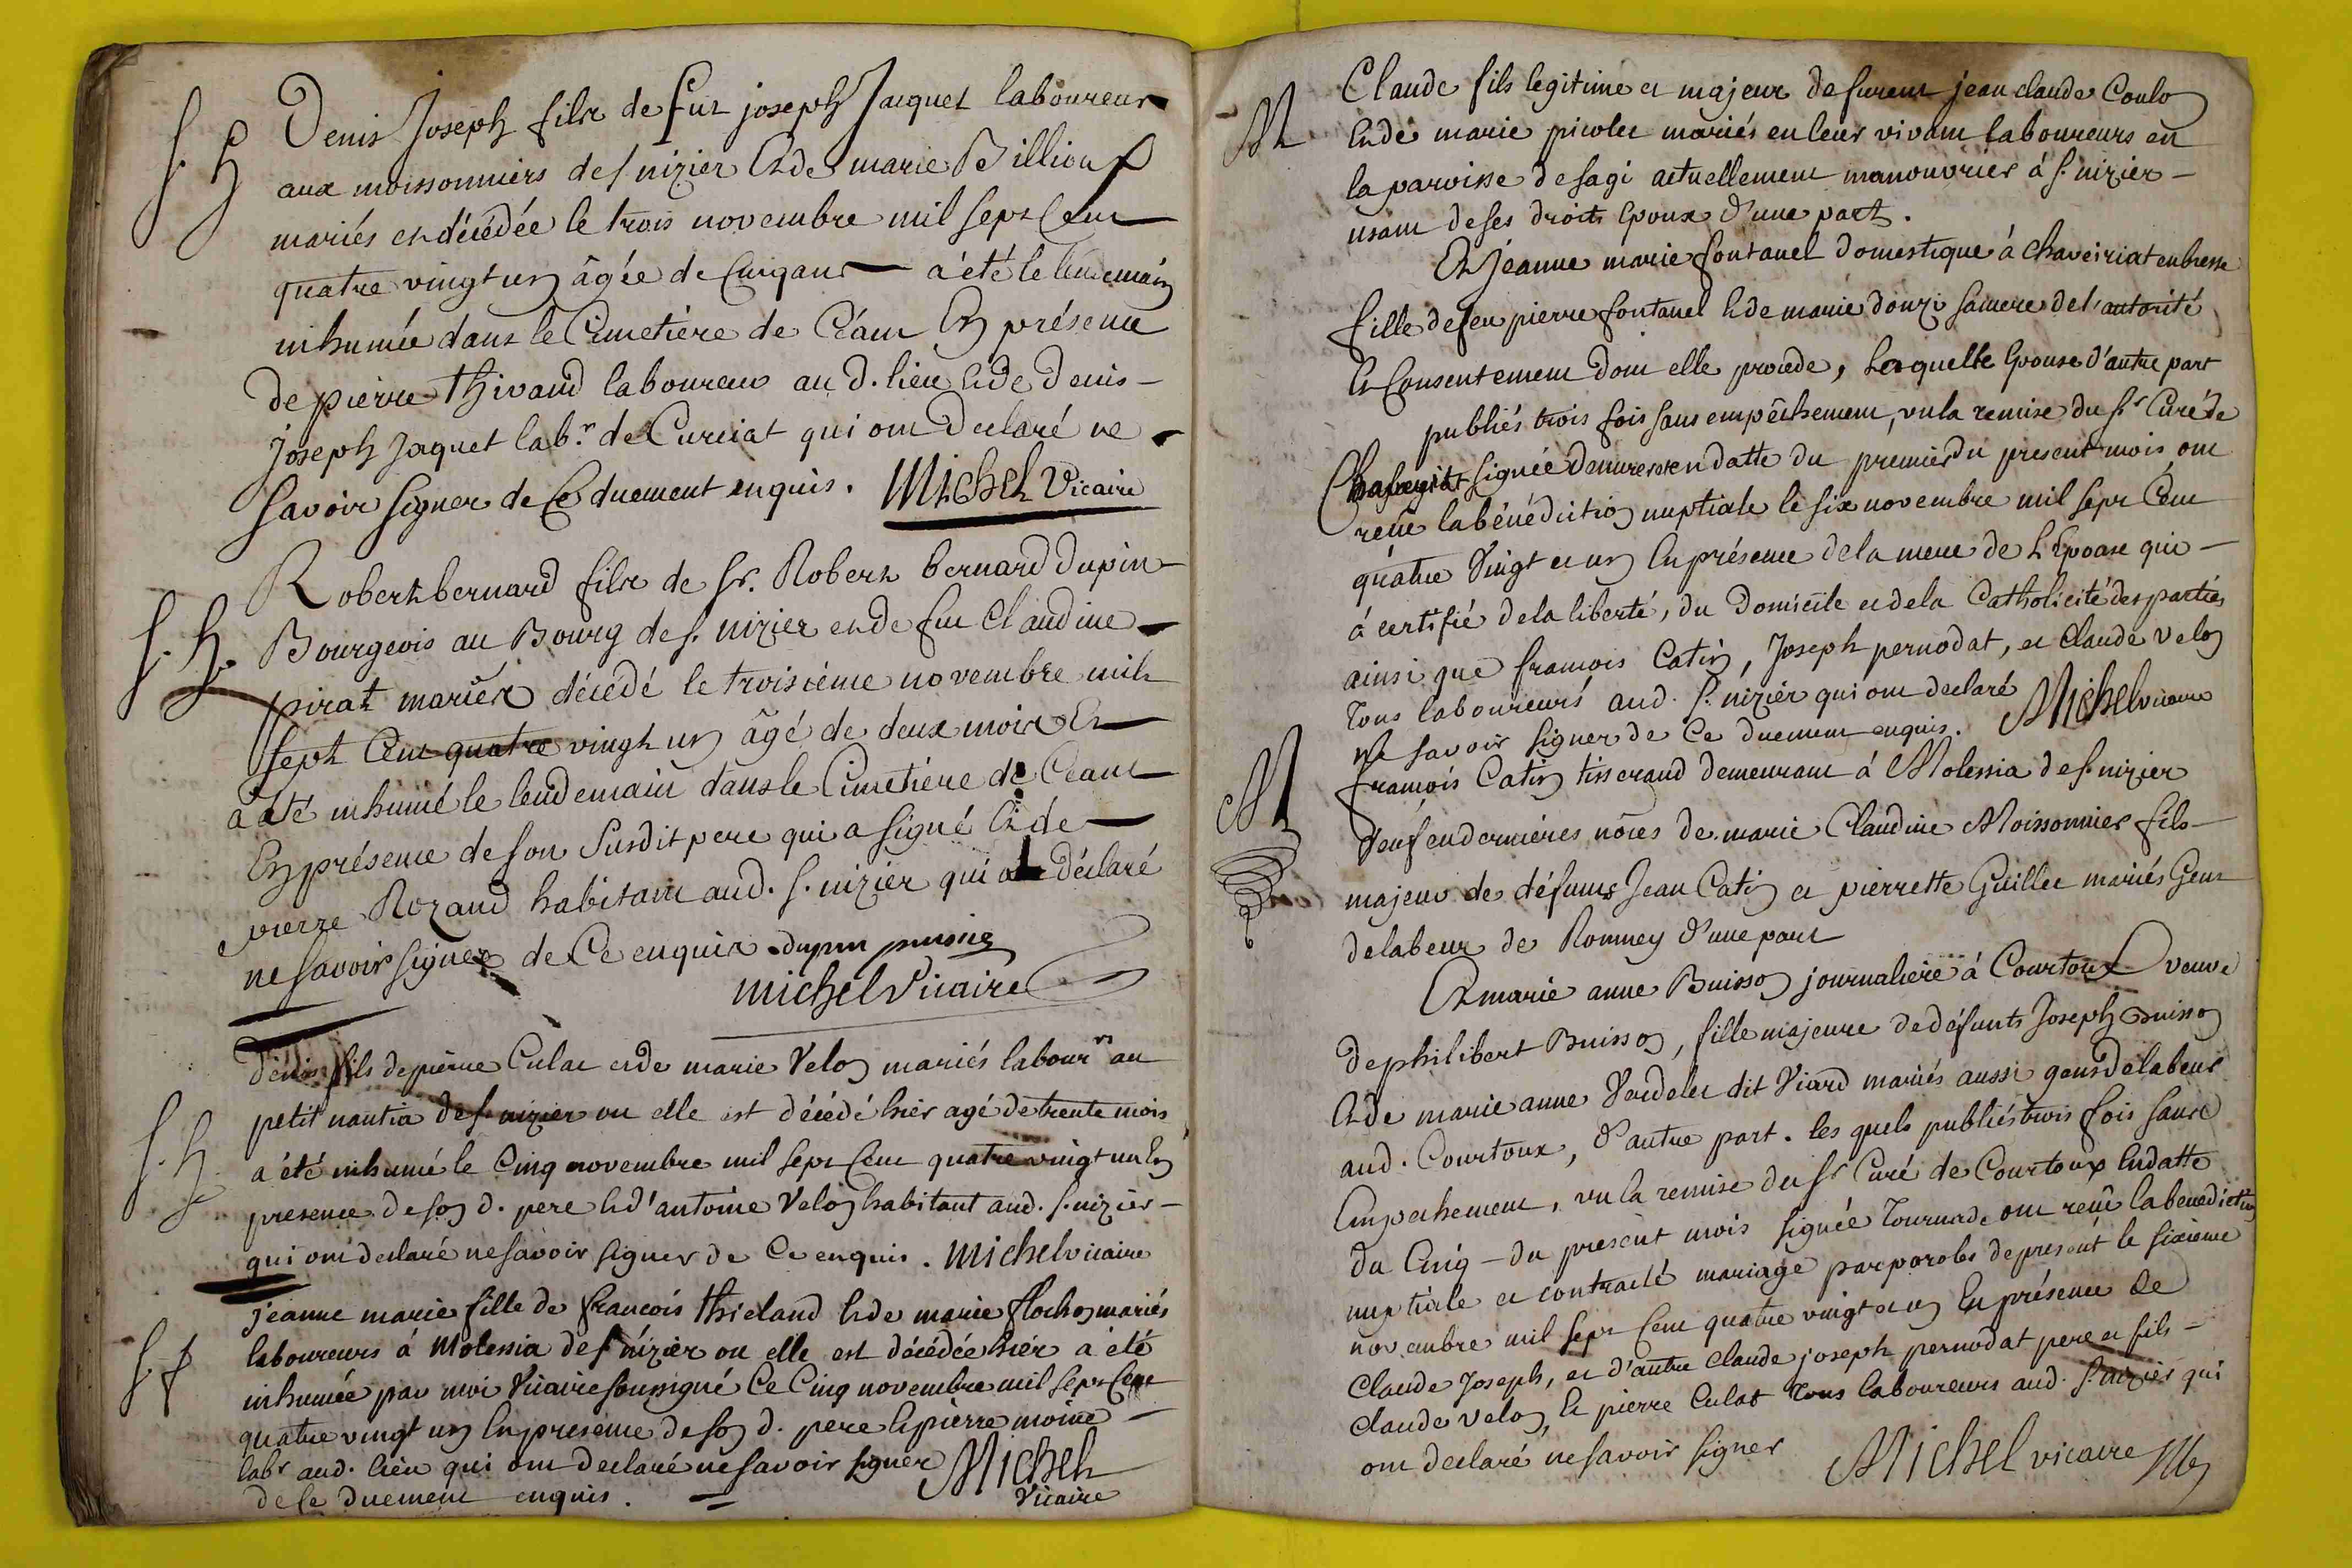 S. h Denis Joseph fils de fut joseph Jacquet laboureur
aux moissonniers de s nizier et de marie Billiou
mariés et décédée le trois novembre mil sept Cent
quatre vingt un âgée de Cinq ans a été le lendemain
inhumée dans le Cimetière de Céant En présence
de pierre Thivand laboureur au d. lieu et de denis
joseph Jaquet lab.r de Curciat qui ont declaré ne
savoir signer de Ce duement enquis. Michel Vicaire
S. h. Robert bernard fils de Sr. Robert bernard Dupin
Bourgeois au Bourg de s. nizier et de fut Claudine
pirat mariés décédé le troisième novembre mil
Sept Cent quatre vingt un âgé de deux mois Et
a été inhumé le lendemain dans le Cimetière de Céant
En présence de son Susdit pere qui a signé et de
pierre Rozand habitant aud. s. nizier qui a déclaré
ne savoir signer de Ce enquis. dupin
michel Vicaire
S. h Denis fils de pierre Culat et de marie Velon mariés labourrs au
petit nantia de s. nizier ou elle est décédé hier agé de trente mois
a été inhumé le Cinq novembre mil sept Cent quatre vingt un En
presence de son d. pere et d'antoine Velon habitant aud. s. nizier
qui ont declaré ne savoir signer de Ce enquis. Michel vicaire
S. h Jeanne marie fille de francois Thieland et de marie flochon mariés
laboureurs à Molessia de s nizier ou elle est décédée hier a été
inhumée par moi Vicaire soussigné Ce Cinq novembre mil sept Cent
quatre vingt un En presence de son d. pere et pierre moine
labr aud. lieu qui ont declaré ne savoir signer Michel
de Ce duement enquis. Vicaire
M Claude fils legitime et majeur de furent jean claude Coulon
Et de marie picolet mariés en leur vivant laboureurs en
la paroisse de sagi actuellement manouvrier à s. nizier
usant de ses droits Epoux d'une part.
Et Jeanne marie fontanel domestique à Chaveiriat en bresse
fille de feu pierre fontanel et de marie donzi sa mere de l'autorité
Et Consentement dont elle procede, Epouse d'autre part
publiés trois fois sans empêchement, vu la remise du Sr Curé de
signée en datte du premier du present mois, ont
reçu la bénédiction nuptiale le six novembre mil sept Cent
quatre Vingt et un En présence de la mere de L'Epouse qui
à certifié de la liberté, du Domicile et de la Catholicité des parties
ainsi que francois Catin, Joseph pernodat, et Claude velon
Tous laboureurs aud. s. nizier qui ont declaré
ne savoir signer de Ce duement enquis. Michel vicaire
M francois Catin tisserand demeurant à Molessia de s. nizier
Veuf en dernieres nôces de marie Claudine Moissonnier fils
majeur de défunts Jean Catin et pierrette Guillet mariés Gens
de labeur de Romney d'une part
Et marie anne Buisson journaliere à Courtoux veuve
de philibert Buisson, fille majeure de défunts Joseph Buisson
Et de marie anne Verdelet dit Viard mariés aussi gens de labeur
aud. Courtoux, d'autre part. les quels publiés trois fois sans
Empechement, vu la remise du Sr Curé de Courtoux En datte
du Cinq du present mois signée Tournade ont reçû la benediction
nuptiale et contracté mariage par paroles de present le sixieme
novembre mil sept Cent quatre vingt et un En présence de
Claude Joseph, et d'autre Claude joseph pernodat pere et fils
Claude velon, Et pierre Culat Tous laboureurs aud. s. nizier qui
ont declaré ne savoir signer Michel vicaire